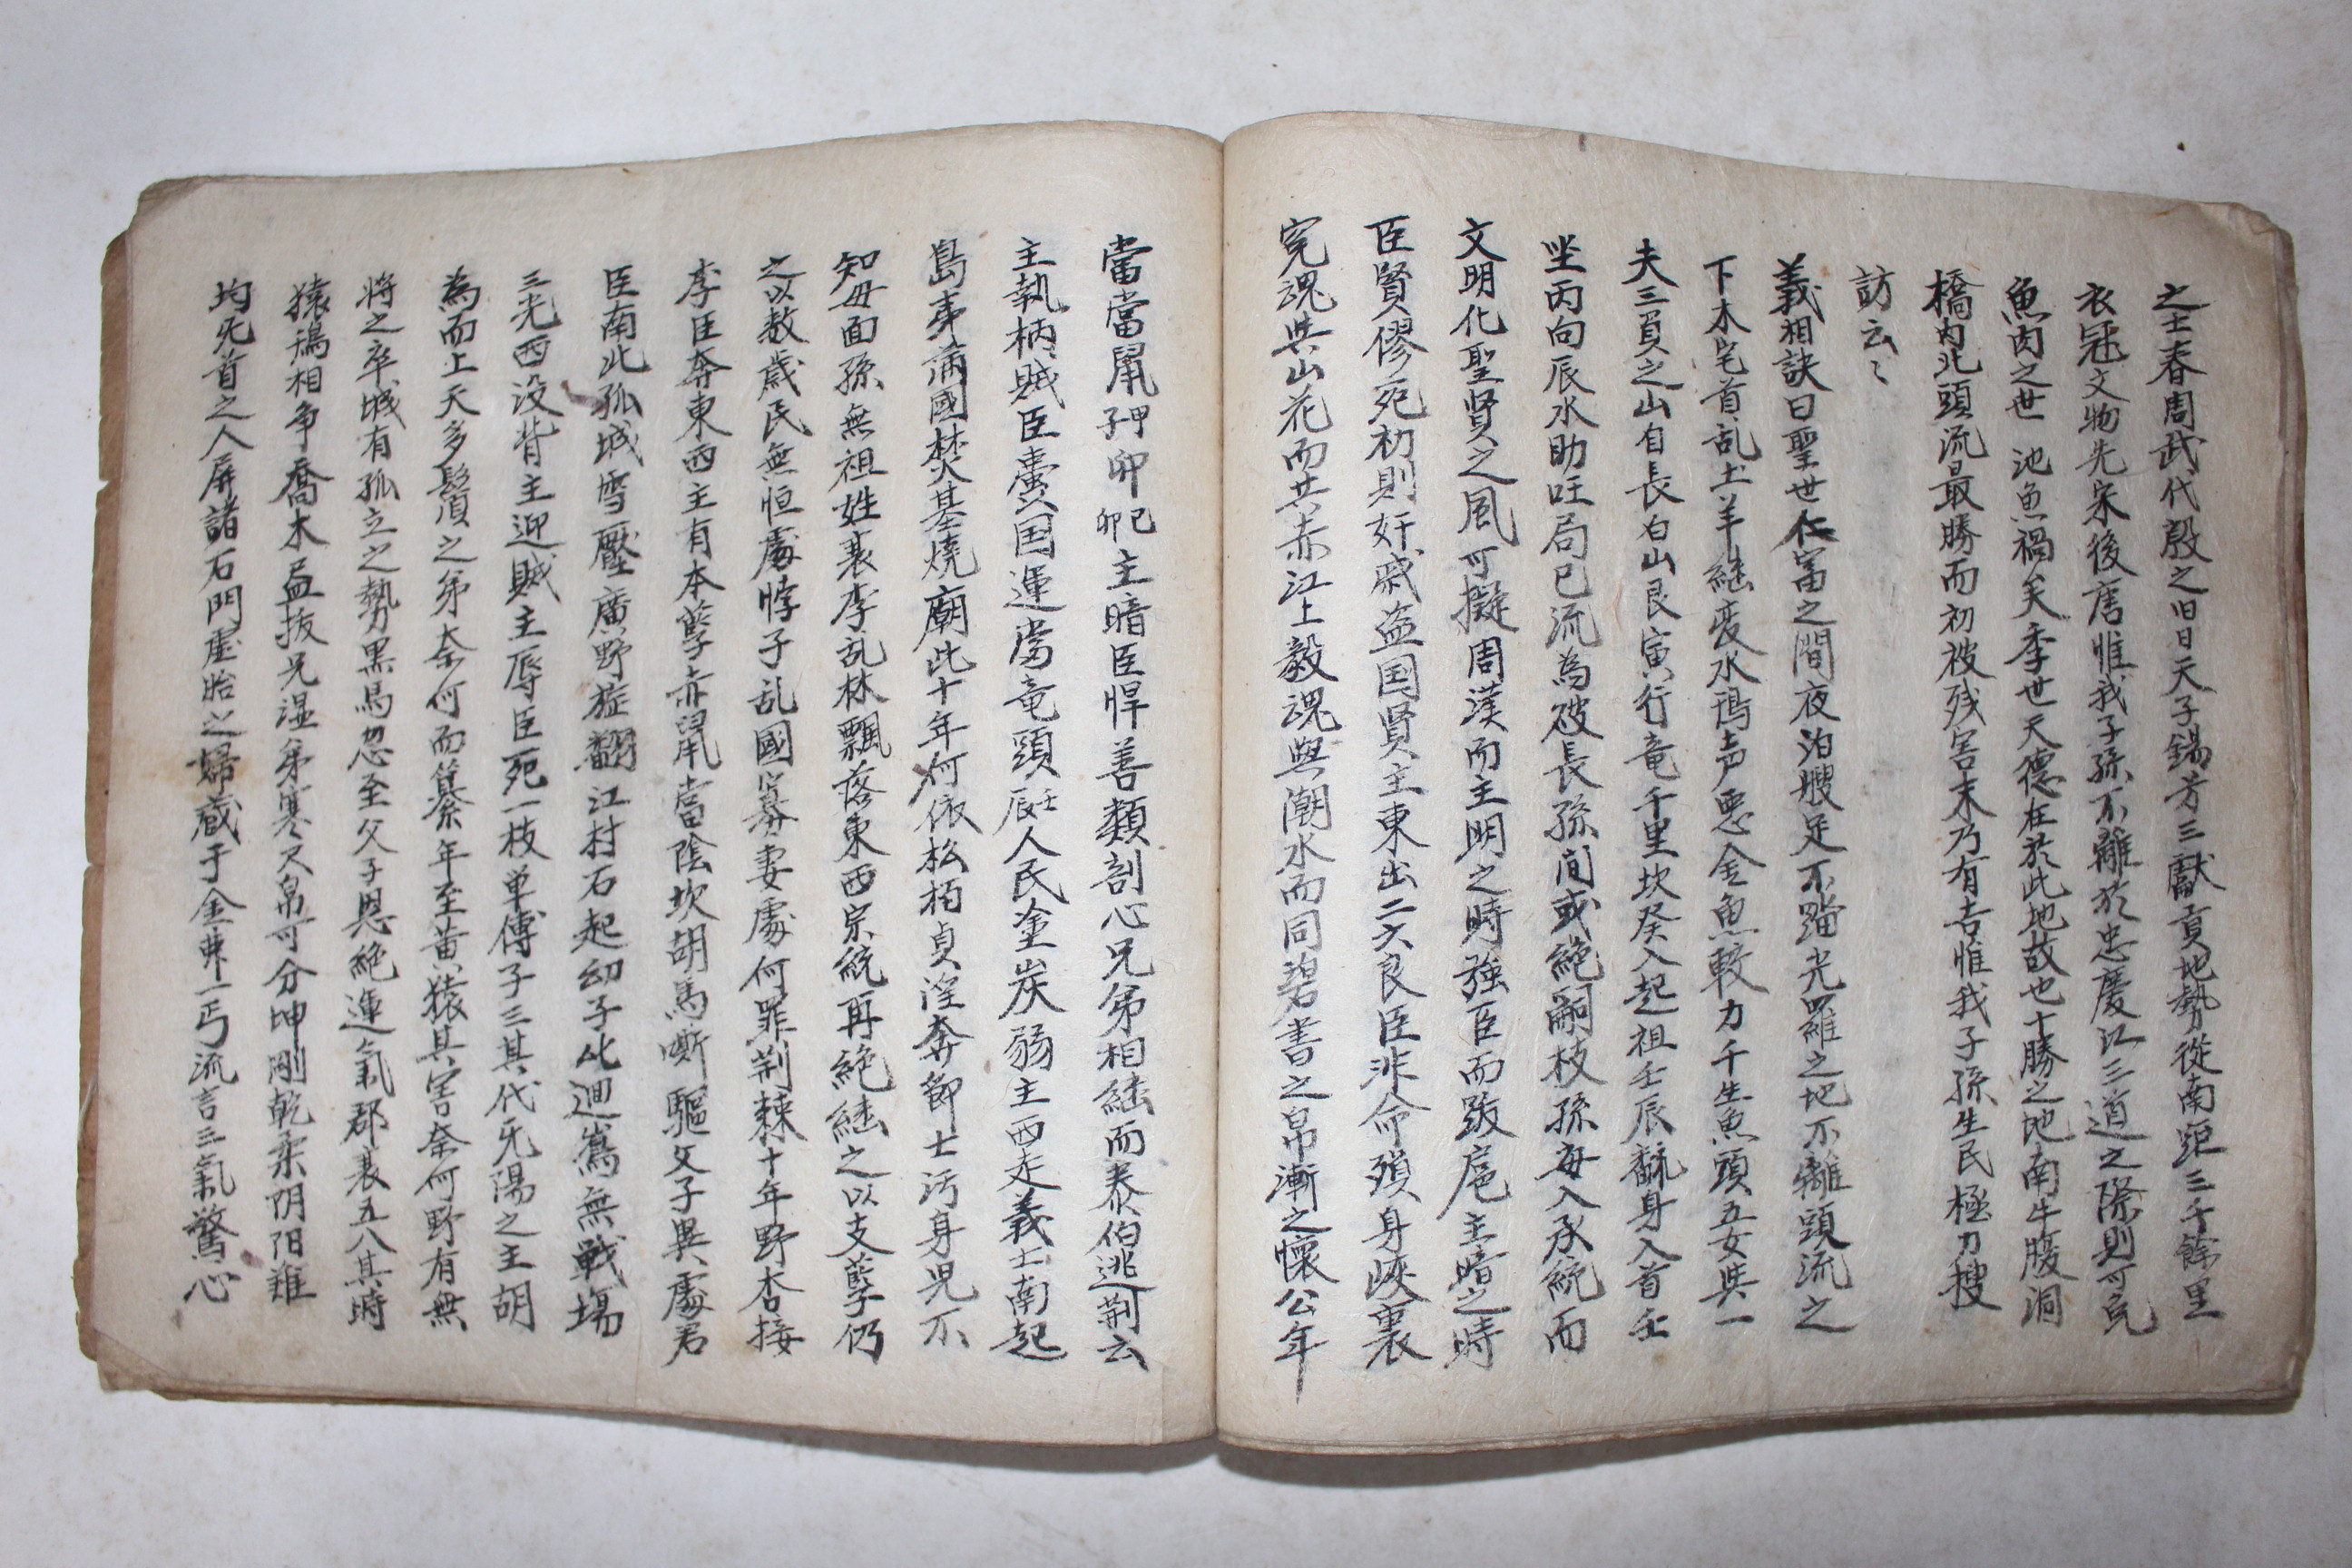 之士春周武代殷之旧日天子錫芳三獻貢地勢從南距三千餘里
衣冠文物先宋後唐惟我子孫不離於忠慶江三道之際則可免
魚肉之世池魚禍矣季世天德在於此地故也十勝之地南牛腹洞
橋内北頭流最勝而初被残害末乃有吉惟我子孫生民極力搜
訪云〻
義相訣曰聖世仁富之間夜泊艘足不踏光羅之地不離頭流之
下木宅首乱土羊継変水鴉声悪金魚較力千生魚頭五女共一
夫三買之山自長白山艮寅行竜千里坎癸入起祖壬辰飜身入首壬
坐丙向辰水助旺局巳流為破長孫間或絶嗣枝孫毎入承統而
文明化聖賢之風可擬周漢而主明之時強臣而跋扈主暗之時
臣賢僇死初則奸戚盗国賢主東出二六良臣非命殞身陜裏
寃魂共山花而共赤江上毅魂與潮水而同碧書之帛漸之懷公年
當當鼠子甲卯卯己主暗臣悍善類剖心兄弟相継而泰伯逃荆云
主執柄賊臣蠹国運當竜頭辰壬人民塗炭弱主西走義士南起
島夷満國焚基燒廟此十年何依松柏貞淫奔節士汚身児不
知母面孫無祖姓裴李乱林飄落東西宗統再絶継之以支孼仍
之以数歳民無恒處悖子乱國寡妻處何罪荆棘十年野杏接
李臣奔東西主有本孼赤鼠當陰坎胡馬嘶驅父子異處君
臣南北孤城雪壓廣野旋翻江村石起幼子此迴嵩無戦塲
三光西没背主迎賊主辱臣死一枝单傳子三其代死陽之主胡
為而上天多鬚之弟奈何而簒年至黄猿其害奈何野有無
將之卒城有孤立之勢黒馬忽至父子恩絶運氣郡裴五八其時
猿鴉相争喬木益抜兄湿弟寒尺帛可分坤剛乾柔阴阳雜
均死首之人屏諸石門崖胎之婦蔵于金弗一丐流言三氣驚心